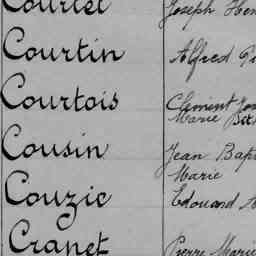 Courtel Joseph
Courtin Alfred
Courtois Clément
Marie
Cousin Jean Bap
Marie
Couzic Edouard
Crapet Pierre Marie